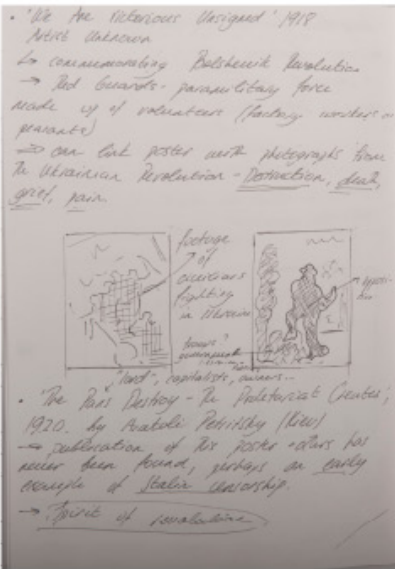 • 'We Are Victorious Unsigned' 1918
Artist Unknown
↳ commemorating Bolshevik Revolution
→ Red Guards - paramilitary force
made up of volunteers (factory workers or
peasants)
⇒ can link poster with photographs from
the Ukrainian Revolution - Destruction, death,
grief, pain.
footage
of
civilians
fighting
in Ukraine
"lord", capitalists, owners...
• 'The Pans Destroy - The Proletariat Creates',
1920. by Anatoli Petritsky (Kiev)
→ publication of his poster
never been found, perhaps an early
example of Stalin censorship.
→ Spirit of revolution